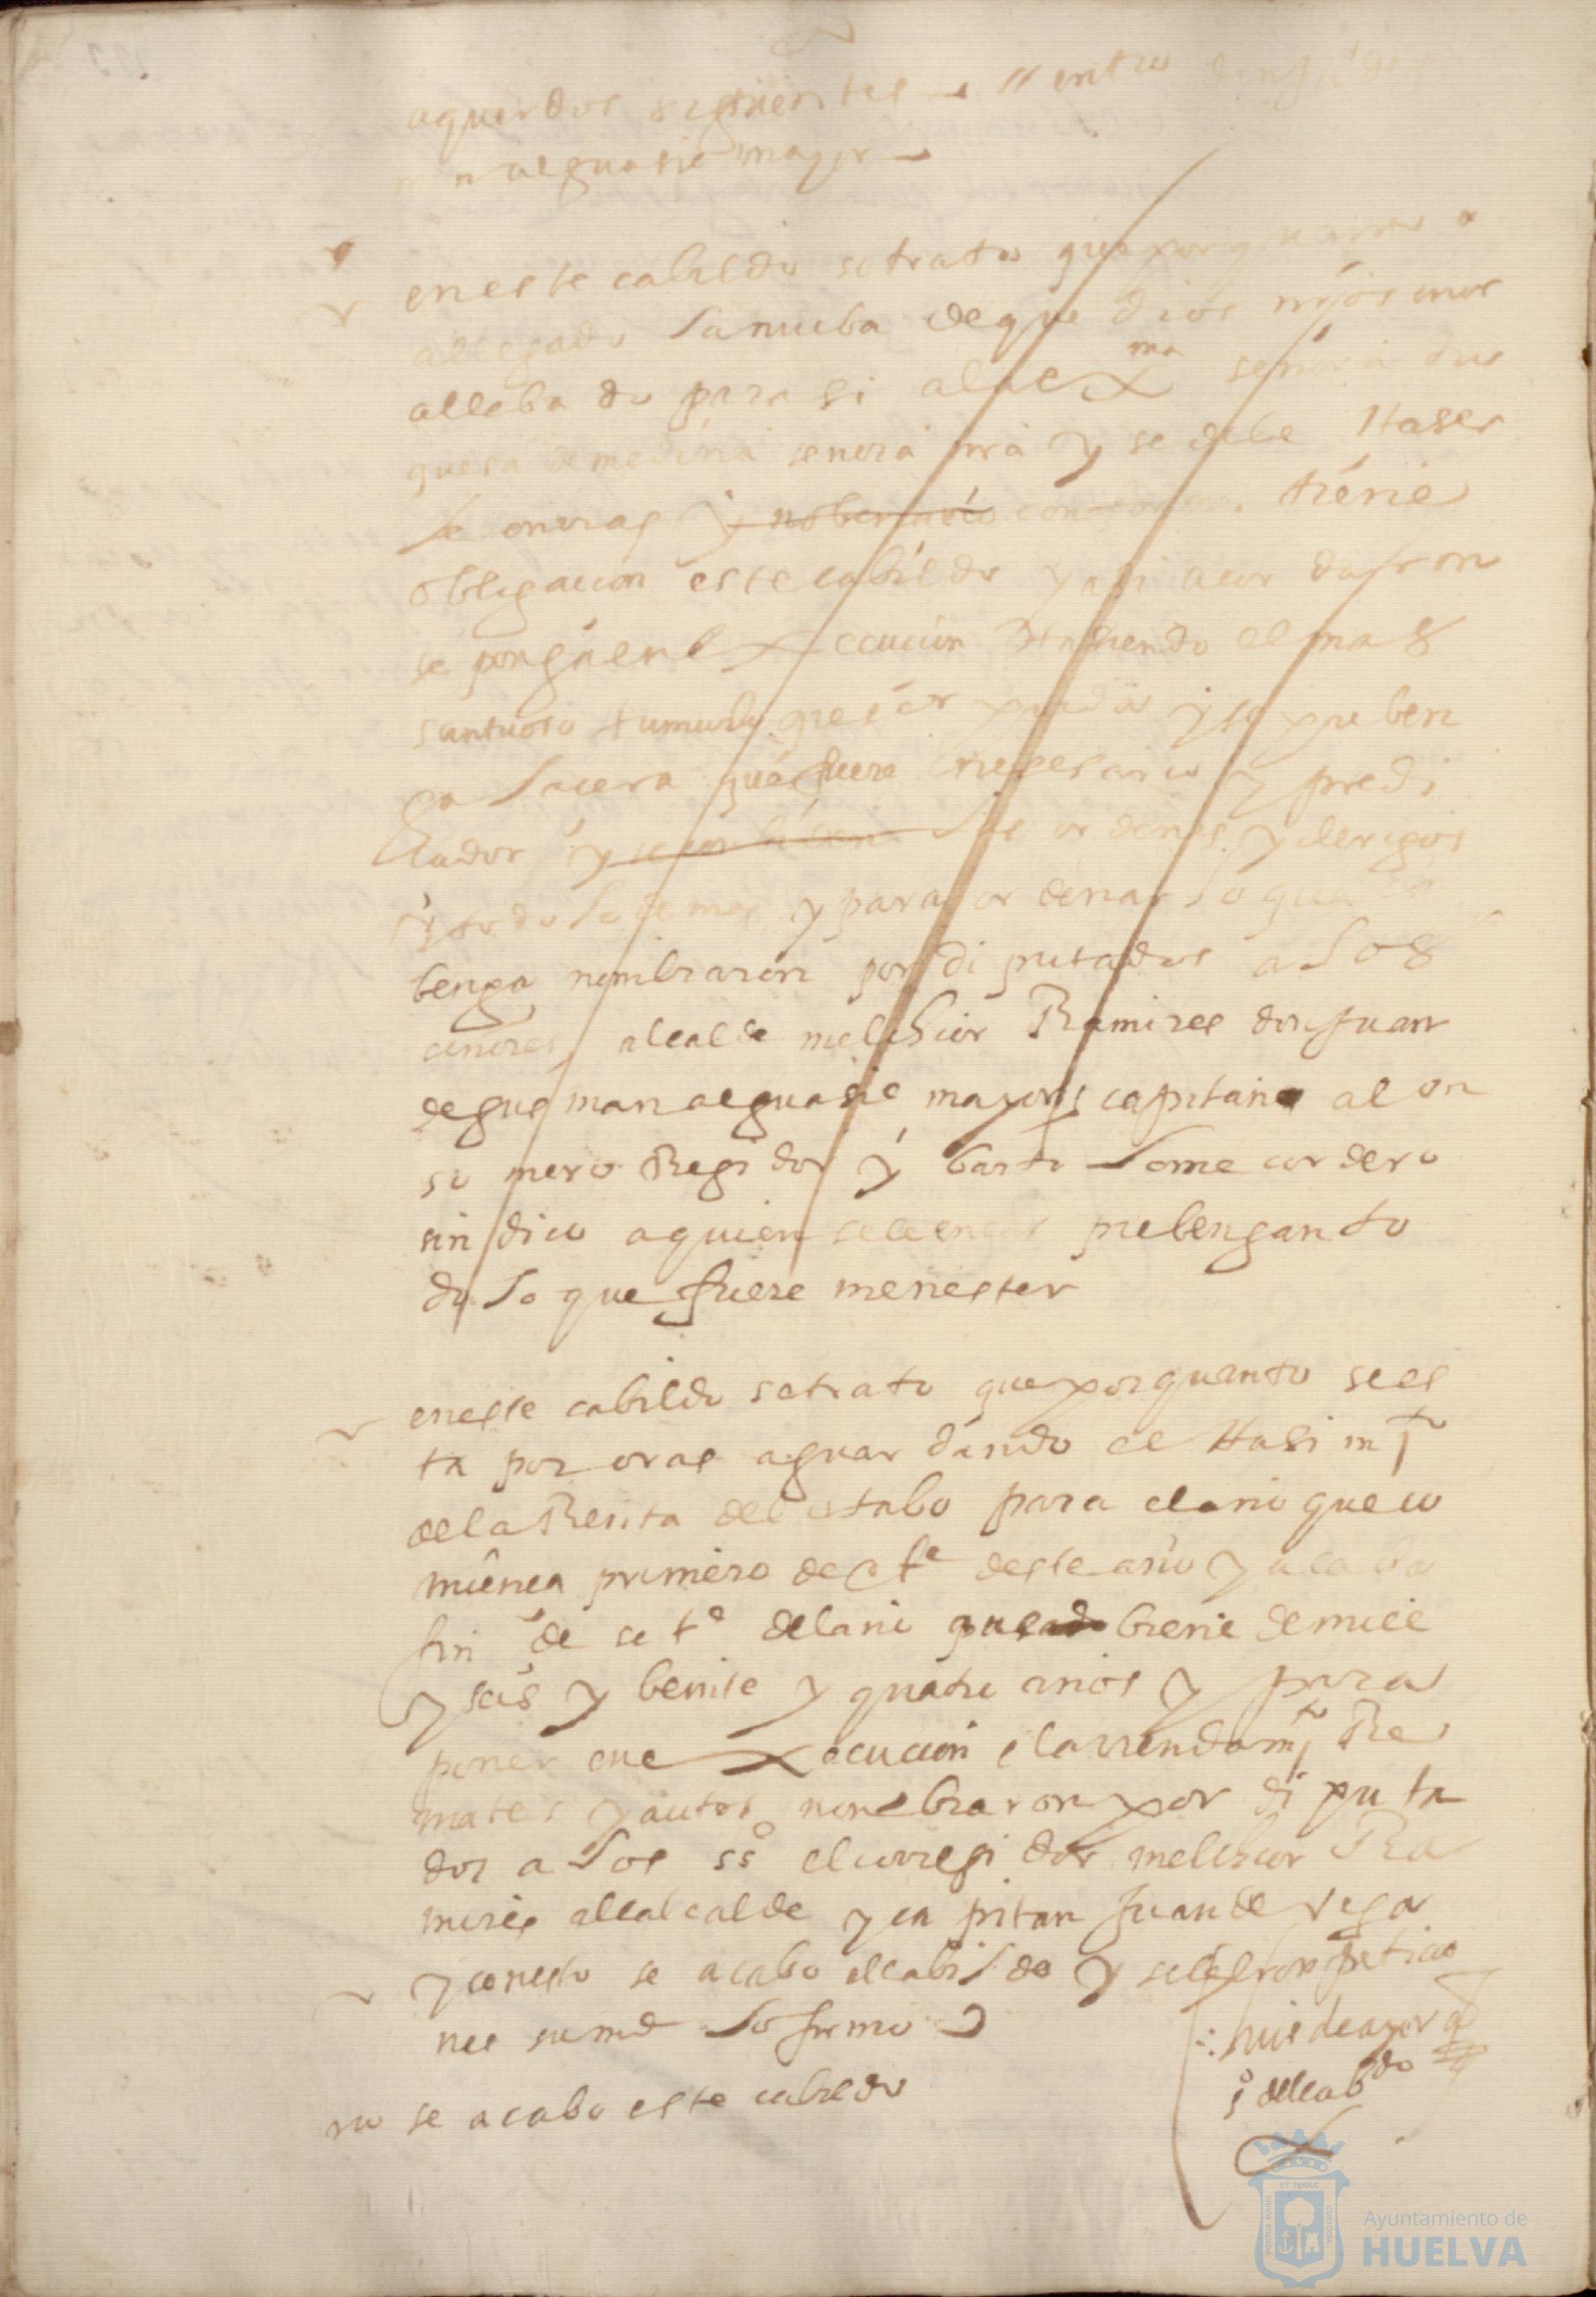 aquerdos siguientes // entro
n alguasil mayor
en este cabildo se trato que por quanto a
allegado la nueba de que dios nrōs mor
allebado para si a la exma señora du
quesa de medina señora nrā y se debe Haser
le onrras y nobenario tiene
obligacion este cabildo y asi acordaron
se ponga en execucion Hasiendo el mas
suntuoso tumulo que ser pueda y se preben
ga la cera que fuere nesesario y predi
cador y los ordenes y clerigos
y todo lo demas y para ordenar lo que
benga nombraron por diputados a los
señores alcalde melchior Ramires don juan
de gusman alguasil mayor capitan alon
so mero Regidor y barto lome cordero
sindico a quien se le encar prebengan to
do lo que fuere menester
en este cabildo se trato que por quanto se es
ta por oras aguardando el Hasimto
de la Renta del estabo para el año que co
miensa primero de ote deste año y acaba
fin de sete del año que biene de mill
y seis y beinte y quatro años y para
poner en execucion el arrendamto Re
mates y autos nombraron por diputa
dos a los sso el corregidor melchior Ra
mires alcalcalde y capitan juan de vega
y con esto se acabo el cabildo y se leyeron peticio
nes su md lo firmo
luis de ayor
so del cabdo
no se acabo este cabildo
Ayuntamiento de
HUELVA